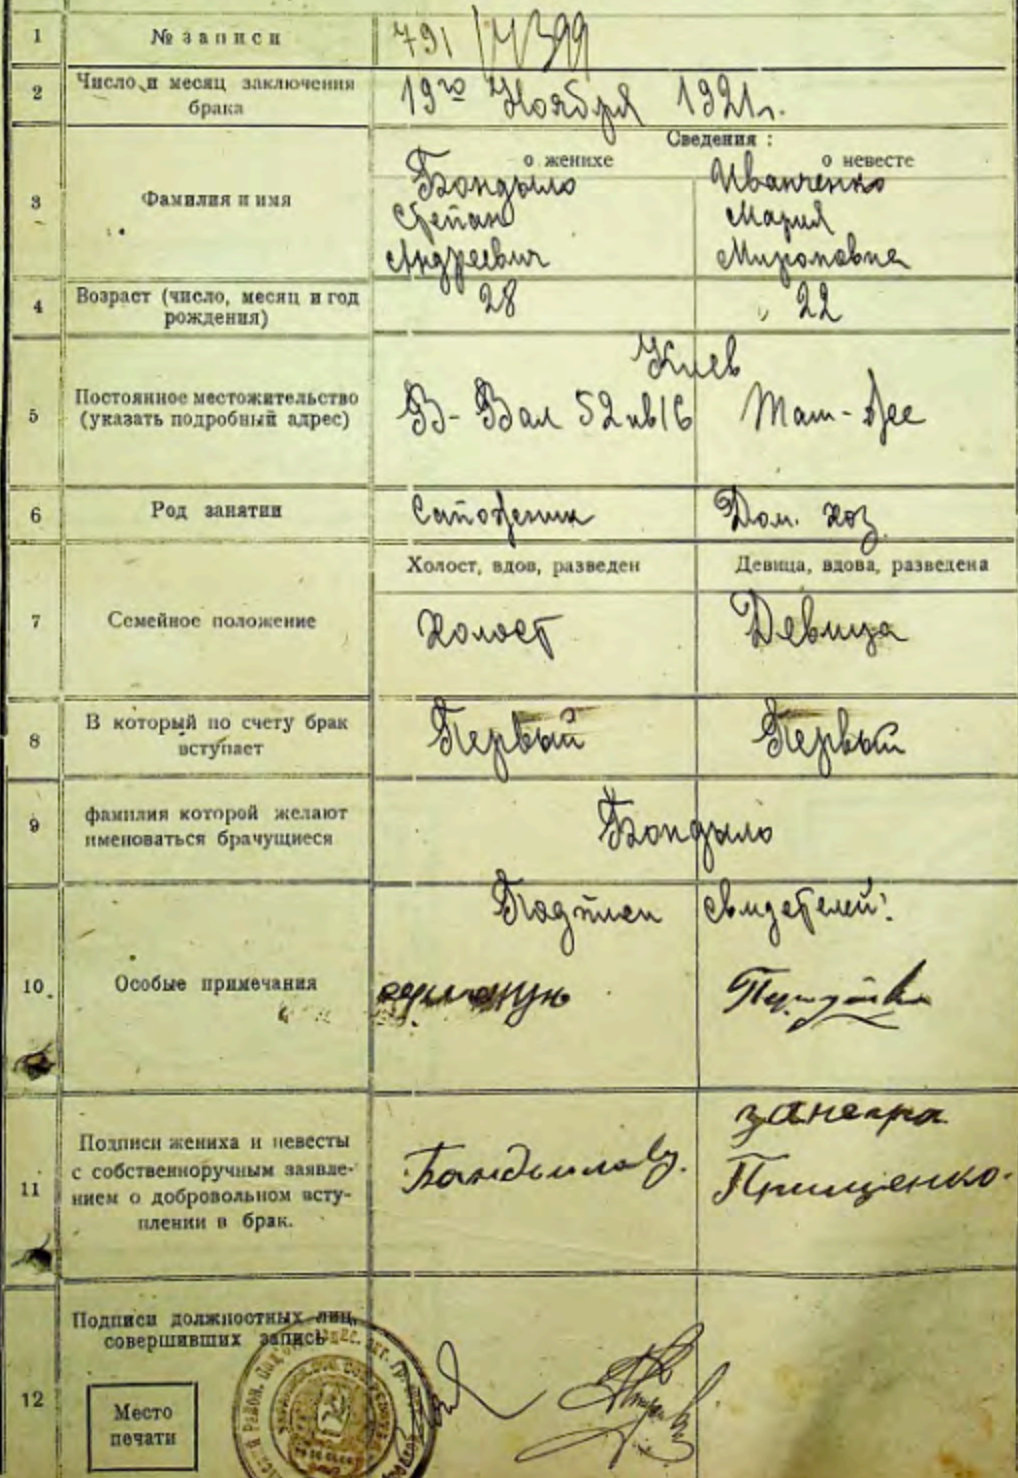 1 № записи 791
2 Число и месяц заключения
брака
19го Ноября 1921г.
Сведения :
о женихе о невесте
3 Фамилия и имя
Бондыло Иванченко
Степан Мария
Андреевич Мироновна
4 Возраст (число, месяц и год
рождения)
28 22
Киев
5 Постоянное местожительство
(указать подробный адрес)
В-Вал 52 кв 16 Там-же
6 Род занятии Сапожник Дом. хоз
Холост, вдов, разведен Девица, вдова, разведена
7 Семейное положение Холост Девица
8 В который по счету брак
вступает
Первый Первый
9 фамилия которой желают
именоваться брачущиеся
Бондыло
Подписи свидетелей:
10. Особые примечания
11 Подписи жениха и невесты
с собственноручным заявле-
нием о добровольном всту-
плении в брак.
Грищенко.
12 Подписи должностных лиц,
совершивших запись
Место
печати